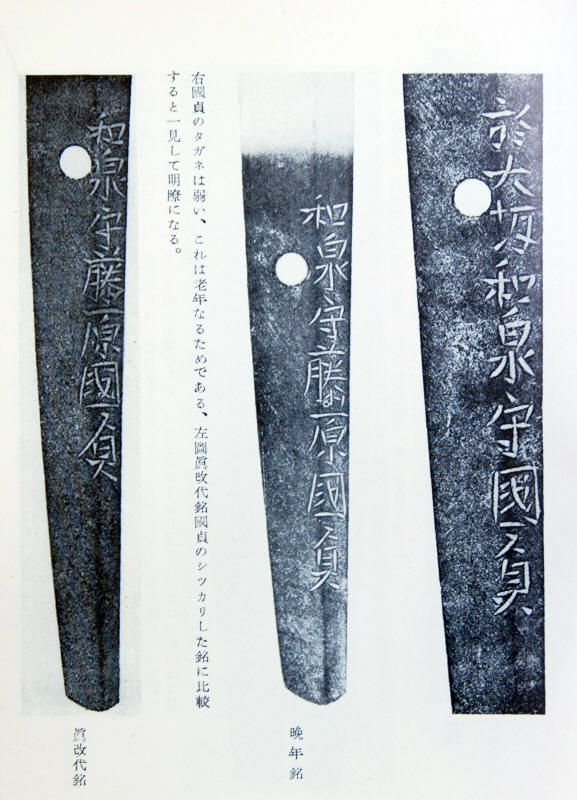 於大坂和泉守國貞
和泉守藤原國貞
晩年銘
右國貞のタガネは弱い、これは老年なるためである、左圖眞改代銘國貞のシツカリした銘に比較
すると一見して明瞭になる。
和泉守藤原國貞
眞改代銘